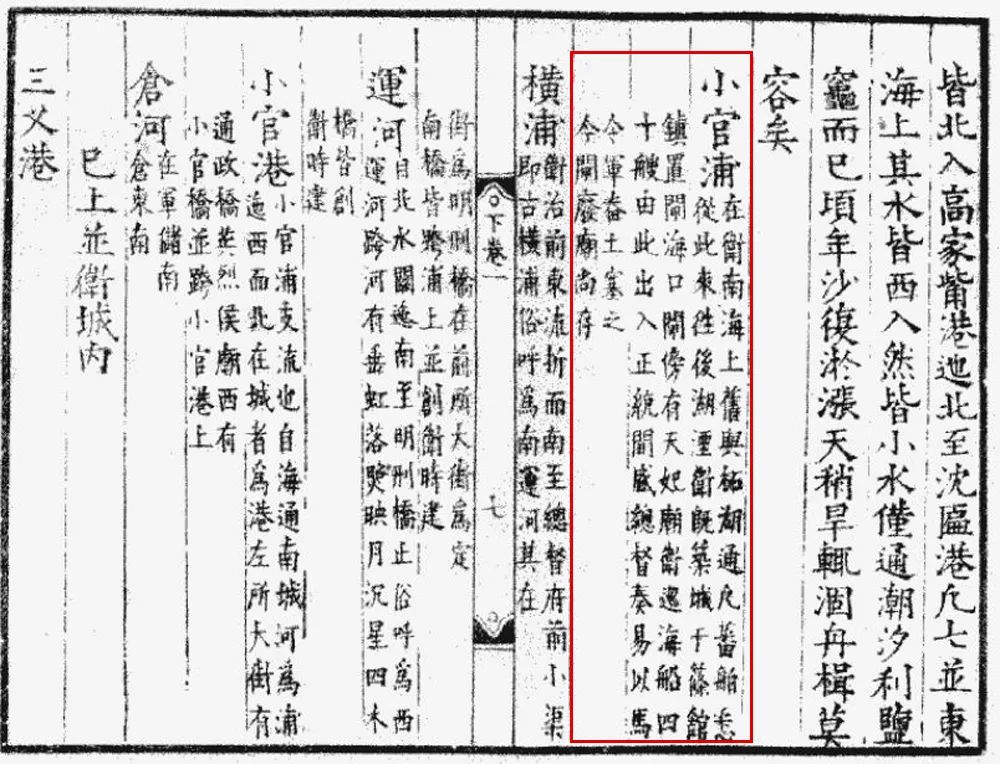 皆北入高家觜港迤北至沈區港凡七並東
海上其水皆西入然皆小水僅通潮汐利鹽
竈而已頃年沙復淤漲天稍旱輒涸舟楫莫
容矣
小官浦
在衛南海上舊與柘湖通凡番舶悉
從此來徃後湖湮衛旣築城于篠館
鎮置閘海口閘傍有天妃廟衛邊海船四
十艘由此出入正統間戚總督奏易以馬
令軍畚土塞之
今閘廢廟尚存
橫浦
衛治前東流折而南至總督府前小渠
即古橫浦俗呼爲南運河其在
下卷一
七
街爲明刑橋在前所大街爲定
南橋皆跨浦上並創衛時建
運河
自北水關迤南至明刑橋止俗呼爲西
運河跨河有垂虹落映月沉星四木
橋皆創
衛時建
小官港
小官浦支流也自海通南城河爲浦
迤西而北在城者爲港左所大街有
通政橋英烈侯廟西有
小官橋並跨小官港上
倉河
在軍儲南
倉東南
已上並衛城内
三父港